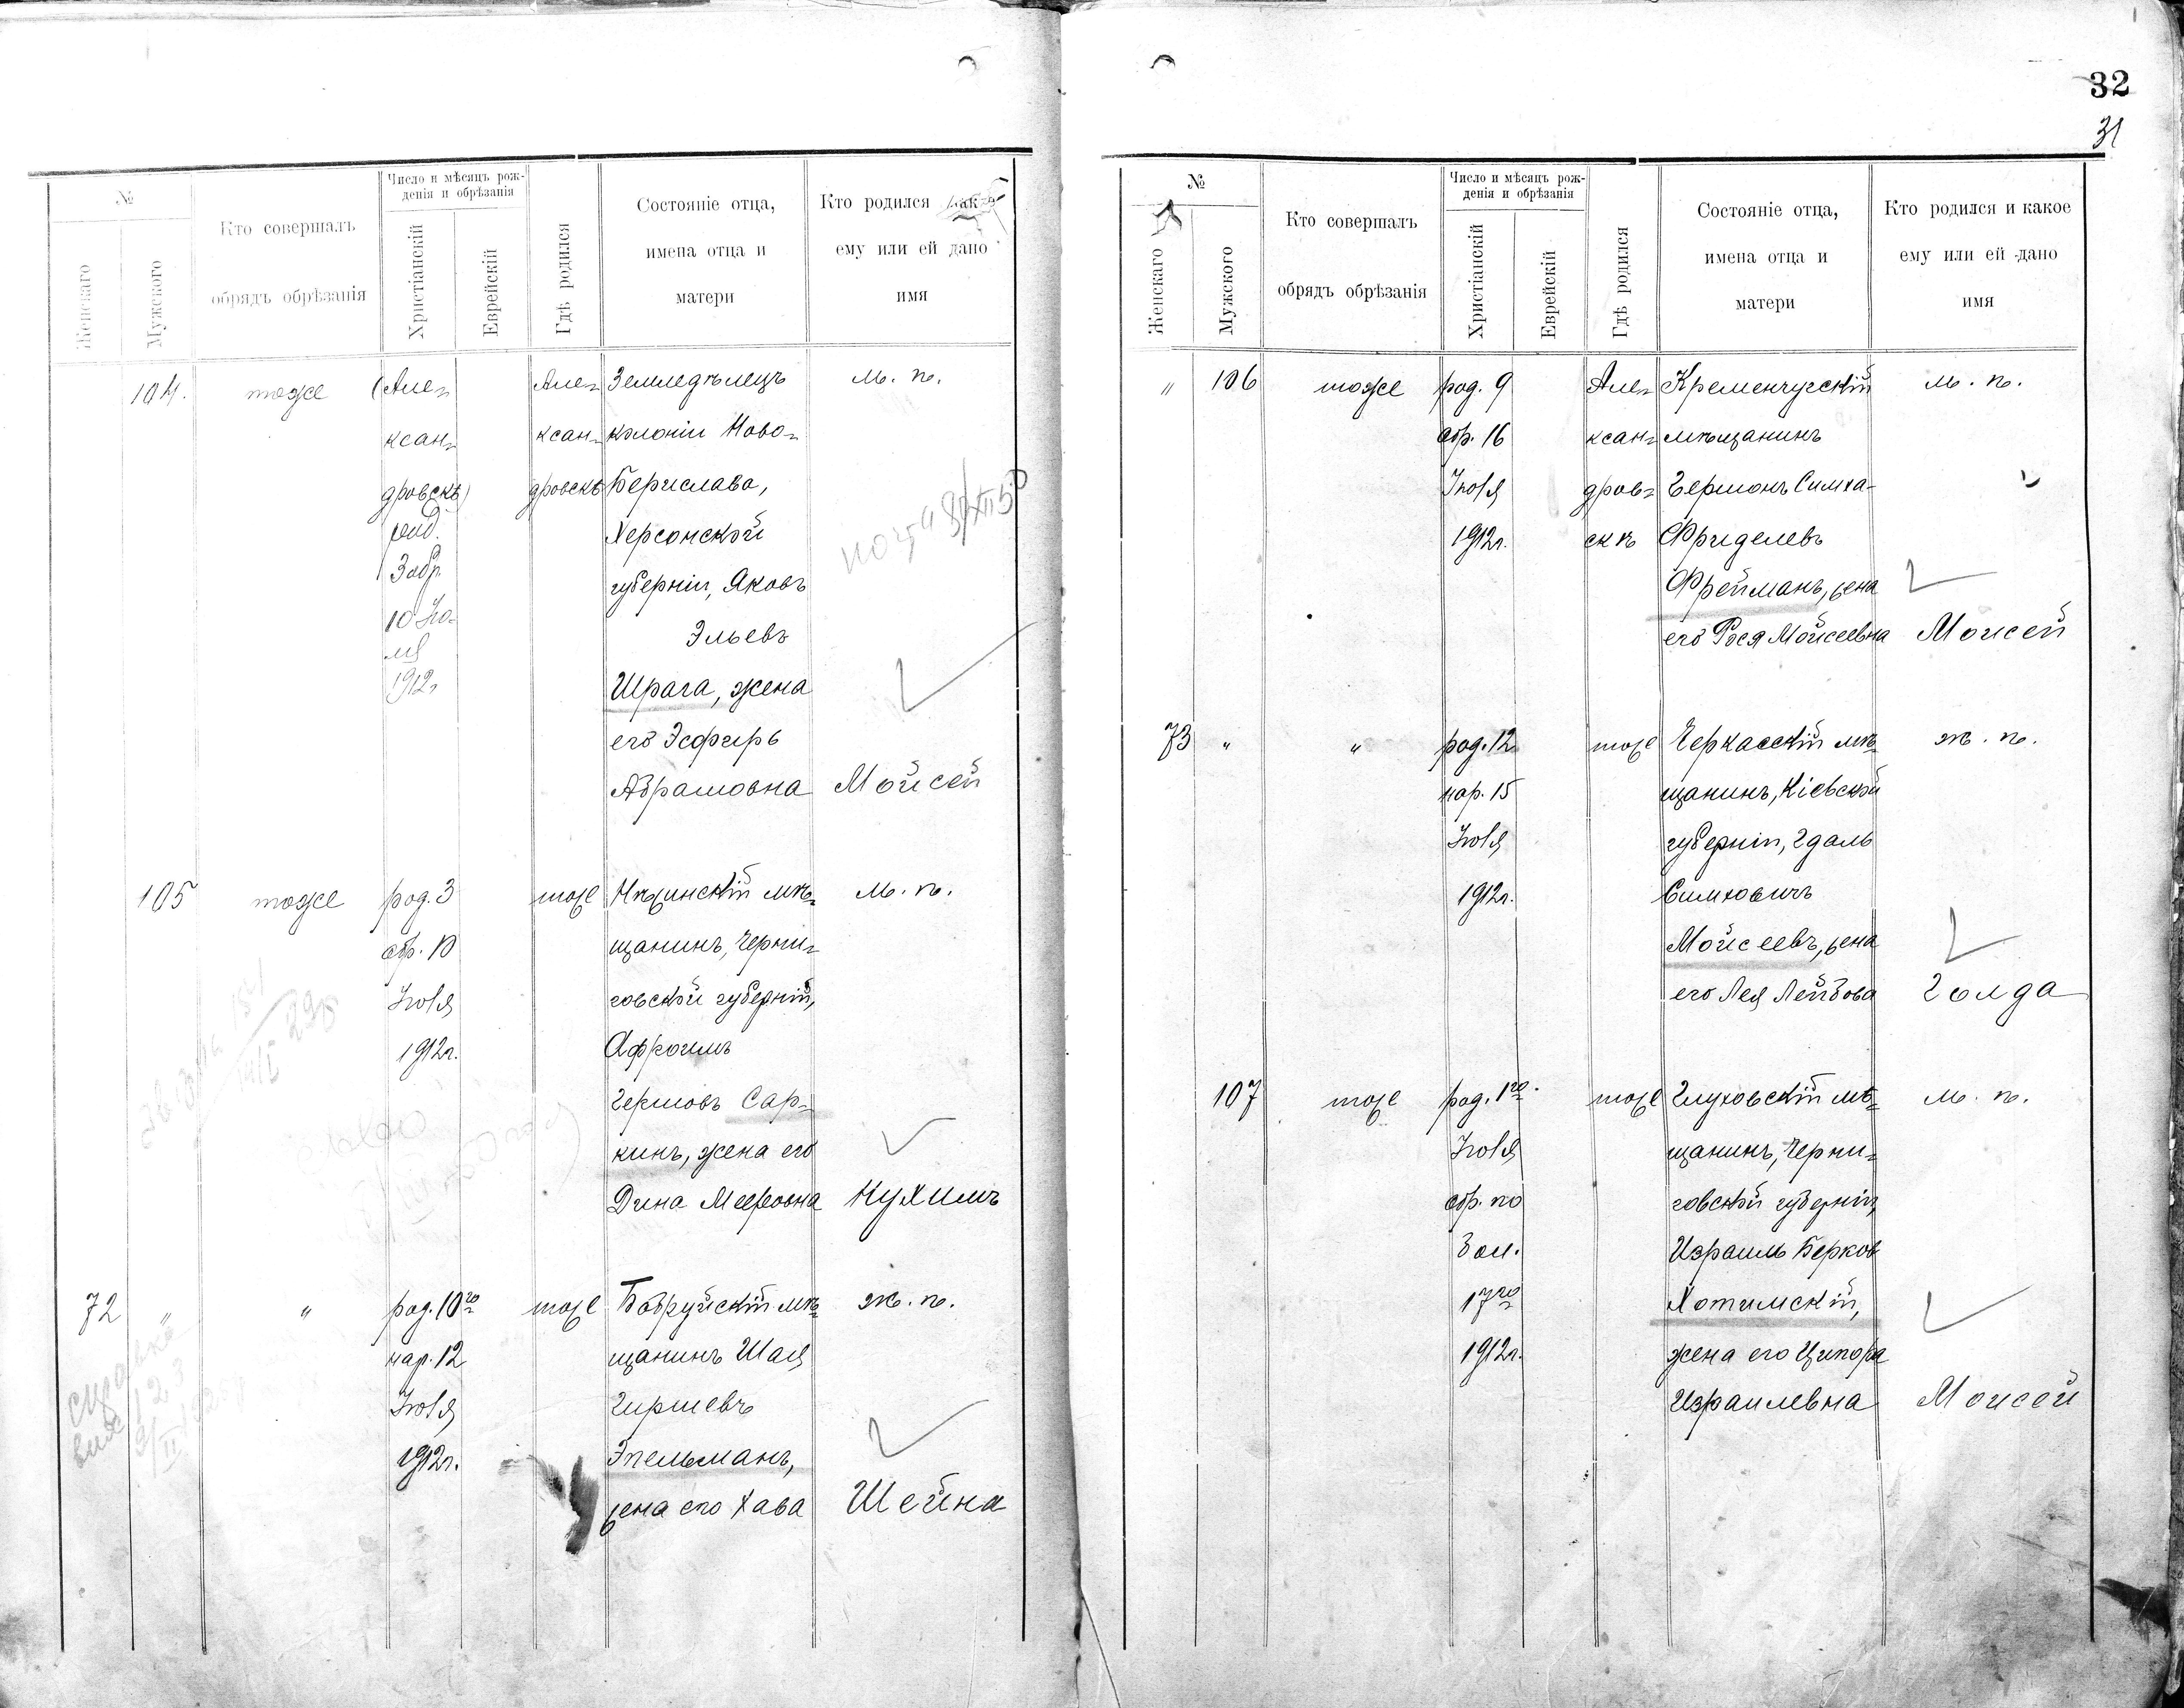 №
Женскаго
Мужского
Кто совершалъ
обрядъ обрѣзанія
Число и мѣсяцъ рож-
денія и обрѣзанія
Христіанскій
Еврейскій
Гдѣ родился
Состояніе отца,
имена отца и
матери
Кто родился
ему или ей дано
имя
104.
тоже
(Але=
ксан=
дровскъ)
10 Iю=
ля
1912г
Але=
ксан=
дровскъ
Земледѣлецъ
колоніи Ново=
Берислава,
Херсонской
губерніи, Яковъ
Эльевъ
Шрага, жена
его Эсфирь
Абрамовна
м. п.
Мойсей
105
тоже
род. 3
обр. 10
Iюля
1912г.
тоже
Нѣжинскій мѣ=
щанинъ, Черни=
говской губерніи,
Афроимъ
Гершовъ Сар=
кинъ, жена его
Дина Мееровна
м. п.
Нухимъ
72
"
"
род. 10го
нар. 12
Iюля
1912г.
тоже
Бобруйскій мѣ=
щанинъ Шая
Гиршевъ
Эпельманъ,
жена его Хава
ж. п.
Шейна
32
31
№
Женскаго
Мужского
Кто совершалъ
обрядъ обрѣзанія
Число и мѣсяцъ рож-
денія и обрѣзанія
Христіанскій
Еврейскій
Гдѣ родился
Состояніе отца,
имена отца и
матери
Кто родился и какое
ему или ей дано
имя
"
106
тоже
род. 9
обр. 16
Iюля
1912г.
Але=
ксан=
дров=
скъ
Кременчугскій
мѣщанинъ
Гершонъ Симха-
Фриделевъ
Фрейманъ, жена
его Рося Мойсеевна
м. п.
Моисей
73
"
"
род. 12
нар. 15
Iюля
1912г.
тоже
Черкасскій мѣ=
щанинъ, Кіевской
губерніи, Гдаль
Симховичъ
Мойсеевъ, жена
его Лея Лейбова
ж. п.
Голда
107
тоже
род. 1го
Iюля
обр. по
бол.
17го
1912г.
тоже
Глуховскій мѣ=
щанинъ, Черни=
говской губерніи,
Израиль Берков
Хотимскій,
жена его Ципора
Израилевна
м. п.
Моисей